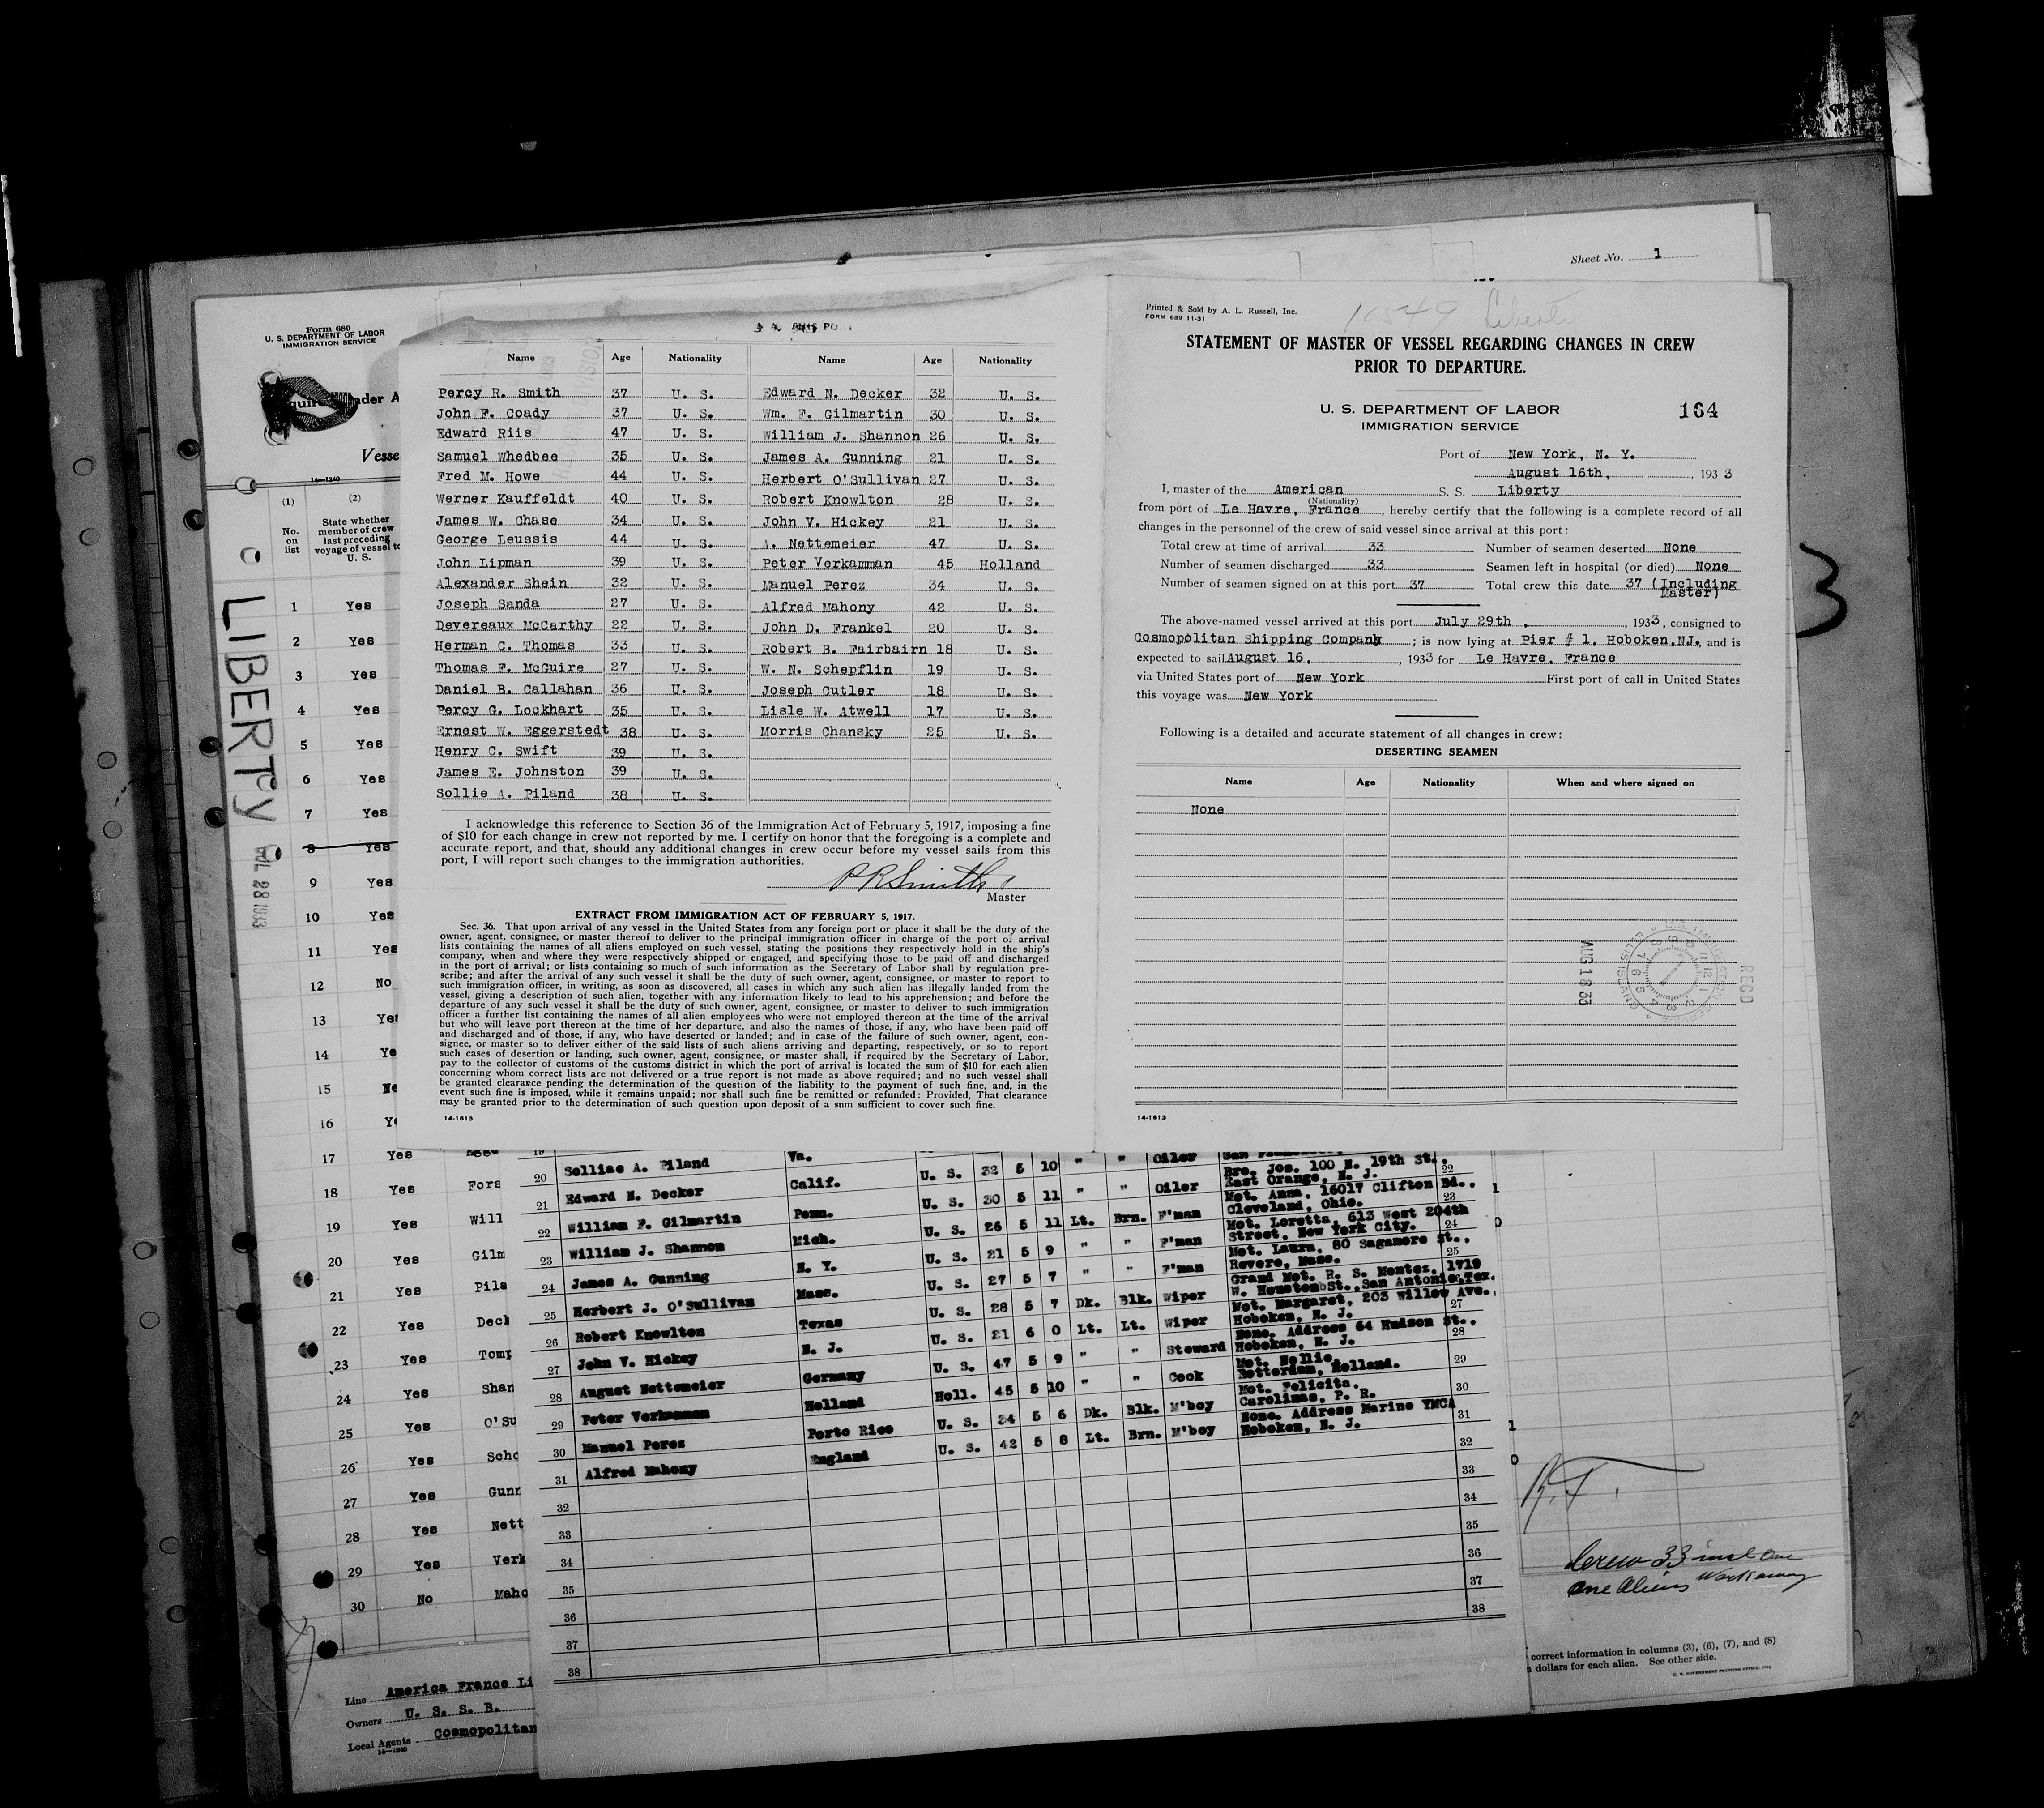 Sheet No. 1
Form 680
U. S. DEPARTMENT OF LABOR
IMMIGRATION SERVICE
nder A
Vesse
14—1240
(1) (2)
No. on list
State whether member of crew last preceding voyage of vessel to U. S.
LIBERTY
28 1933
1 Yes
2 Yes
3 Yes
4 Yes
5 Yes
6 Yes
7 Yes
8 Yes
9 Yes
10 Yes
11 Yes
12 No
13 Yes
14 Ye
15 Ne
16 Ye
17 Yes
18 Yes Fors
19 Yes Will
20 Yes Gilm
21 Yes Pila
22 Yes Deck
23 Yes Tomp
24 Yes Shan
25 Yes O'Su
26 Yes Scho
27 Yes Gunn
28 Yes Nett
29 Yes Verk
30 No Maho
Line America France Li
Owners U. S. S. B.
Local Agents Cosmopolitan
14—1240
THIS PORT
Name Age Nationality Name Age Nationality
Percy R. Smith 37 U. S. Edward N. Decker 32 U. S.
John F. Coady 37 U. S. Wm. F. Gilmartin 30 U. S.
Edward Riis 47 U. S. William J. Shannon 26 U. S.
Samuel Whedbee 35 U. S. James A. Gunning 21 U. S.
Fred M. Howe 44 U. S. Herbert O'Sullivan 27 U. S.
Werner Kauffeldt 40 U. S. Robert Knowlton 28 U. S.
James W. Chase 34 U. S. John V. Hickey 21 U. S.
George Leussis 44 U. S. A. Nettemeier 47 U. S.
John Lipman 39 U. S. Peter Verkamman 45 Holland
Alexander Shein 32 U. S. Manuel Perez 34 U. S.
Joseph Sanda 27 U. S. Alfred Mahony 42 U. S.
Devereaux McCarthy 22 U. S. John D. Frankel 20 U. S.
Herman C. Thomas 33 U. S. Robert B. Fairbairn 18 U. S.
Thomas F. McGuire 27 U. S. W. N. Schepflin 19 U. S.
Daniel B. Callahan 36 U. S. Joseph Cutler 18 U. S.
Percy G. Lockhart 35 U. S. Lisle W. Atwell 17 U. S.
Ernest W. Eggerstedt 38 U. S. Morris Chansky 25 U. S.
Henry C. Swift 39 U. S.
James E. Johnston 39 U. S.
Sollie A. Piland 38 U. S.
I acknowledge this reference to Section 36 of the Immigration Act of February 5, 1917, imposing a fine
of $10 for each change in crew not reported by me. I certify on honor that the foregoing is a complete and
accurate report, and that, should any additional changes in crew occur before my vessel sails from this
port, I will report such changes to the immigration authorities.
P R Smith
Master
EXTRACT FROM IMMIGRATION ACT OF FEBRUARY 5, 1917.
Sec. 36. That upon arrival of any vessel in the United States from any foreign port or place it shall be the duty of the
owner, agent, consignee, or master thereof to deliver to the principal immigration officer in charge of the port of arrival
lists containing the names of all aliens employed on such vessel, stating the positions they respectively hold in the ship's
company, when and where they were respectively shipped or engaged, and specifying those to be paid off and discharged
in the port of arrival; or lists containing so much of such information as the Secretary of Labor shall by regulation pre-
scribe; and after the arrival of any such vessel it shall be the duty of such owner, agent, consignee, or master to report to
such immigration officer, in writing, as soon as discovered, all cases in which any such alien has illegally landed from the
vessel, giving a description of such alien, together with any information likely to lead to his apprehension; and before the
departure of any such vessel it shall be the duty of such owner, agent, consignee, or master to deliver to such immigration
officer a further list containing the names of all alien employees who were not employed thereon at the time of the arrival
but who will leave port thereon at the time of her departure, and also the names of those, if any, who have been paid off
and discharged and of those, if any, who have deserted or landed; and in case of the failure of such owner, agent, con-
signee, or master so to deliver either of the said lists of such aliens arriving and departing, respectively, or so to report
such cases of desertion or landing, such owner, agent, consignee, or master shall, if required by the Secretary of Labor,
pay to the collector of customs of the customs district in which the port of arrival is located the sum of $10 for each alien
concerning whom correct lists are not delivered or a true report is not made as above required; and no such vessel shall
be granted clearance pending the determination of the question of the liability to the payment of such fine, and, in the
event such fine is imposed, while it remains unpaid; nor shall such fine be remitted or refunded: Provided, That clearance
may be granted prior to the determination of such question upon deposit of a sum sufficient to cover such fine.
14-1613
Printed & Sold by A. L. Russell, Inc.
FORM 689 11-31
10549 Liberty
STATEMENT OF MASTER OF VESSEL REGARDING CHANGES IN CREW
PRIOR TO DEPARTURE.
U. S. DEPARTMENT OF LABOR
IMMIGRATION SERVICE
164
Port of New York, N. Y.
August 16th, , 193 3
I, master of the American S. S. Liberty
(Nationality)
from port of Le Havre, France , hereby certify that the following is a complete record of all
changes in the personnel of the crew of said vessel since arrival at this port:
Total crew at time of arrival 33 Number of seamen deserted None
Number of seamen discharged 33 Seamen left in hospital (or died) None
Number of seamen signed on at this port 37 Total crew this date 37 (Including
Master)
The above-named vessel arrived at this port July 29th , , 1933, consigned to
Cosmopolitan Shipping Company ; is now lying at Pier # 1, Hoboken,NJ., and is
expected to sail August 16, , 1933 for Le Havre, France
via United States port of New York First port of call in United States
this voyage was New York
Following is a detailed and accurate statement of all changes in crew:
DESERTING SEAMEN
Name Age Nationality When and where signed on
None
AUG 18 33
RECD
14-1613
3
20 Solliae A. Piland Va. Oiler
21 Edward N. Decker Calif. U. S. 32 5 10 " " Oiler Bro. Jos. 100 N. 19th St., East Orange, N. J. 22
22 William F. Gilmartin Penn. U. S. 30 5 11 " " Oiler Mot. Anna, 16017 Clifton Bd., Cleveland, Ohio. 23
23 William J. Shannon Mich. U. S. 26 5 11 Lt. Brn. F'man Mot. Loretta, 613 West 204th Street, New York City. 24
24 James A. Gunning N. Y. U. S. 21 5 9 " " F'man Mot. Laura, 80 Sagamore St., Revere, Mass. 25
25 Herbert J. O'Sullivan Mass. U. S. 27 5 7 " " F'man Grand Mot. R. S. Montez, 1719 W. Houston St., San Antonio,Tex.
26 Robert Knowlton Texas U. S. 28 5 7 Dk. Blk. Wiper Mot. Margaret, 203 Willow Ave., Hoboken, N. J. 27
27 John V. Hickey N. J. U. S. 21 6 0 Lt. Lt. Wiper None. Address 64 Hudson St., Hoboken, N. J. 28
28 August Nettemeier Germany U. S. 47 5 9 " " Steward Mot. Nellie, Rotterdam, Holland. 29
29 Peter Verkamman Holland Holl. 45 5 10 " " Cook Mot. Felicita, Carolinas, P. R. 30
30 Manuel Perez Porto Rico U. S. 34 5 6 Dk. Blk. M'boy None. Address Marine YMCA Hoboken, N. J. 31
31 Alfred Mahony England U. S. 42 5 8 Lt. Brn. M'boy 32
32 33
33 34
34 35
35 36
36 37
37 38
38
Crew 33 incl one
one Aliens Workaway
correct information in columns (3), (6), (7), and (8)
dollars for each alien. See other side.
U. S. GOVERNMENT PRINTING OFFICE